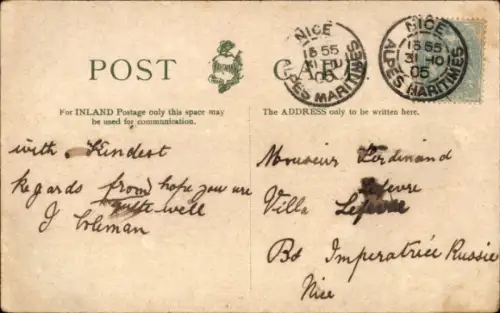 POST CARD
NICE
15 55
31 10
05
ALPES MARITIMES
NICE
15 55
31 10
05
ALPES MARITIMES
For INLAND Postage only this space may
be used for communication.
The ADDRESS only to be written here.
with Kindest
Regards from hope you are
quite well
J Coleman
Monsieur Ferdinand
Lefevre
Villa Lefevre
Bd Imperatrice Russie
Nice